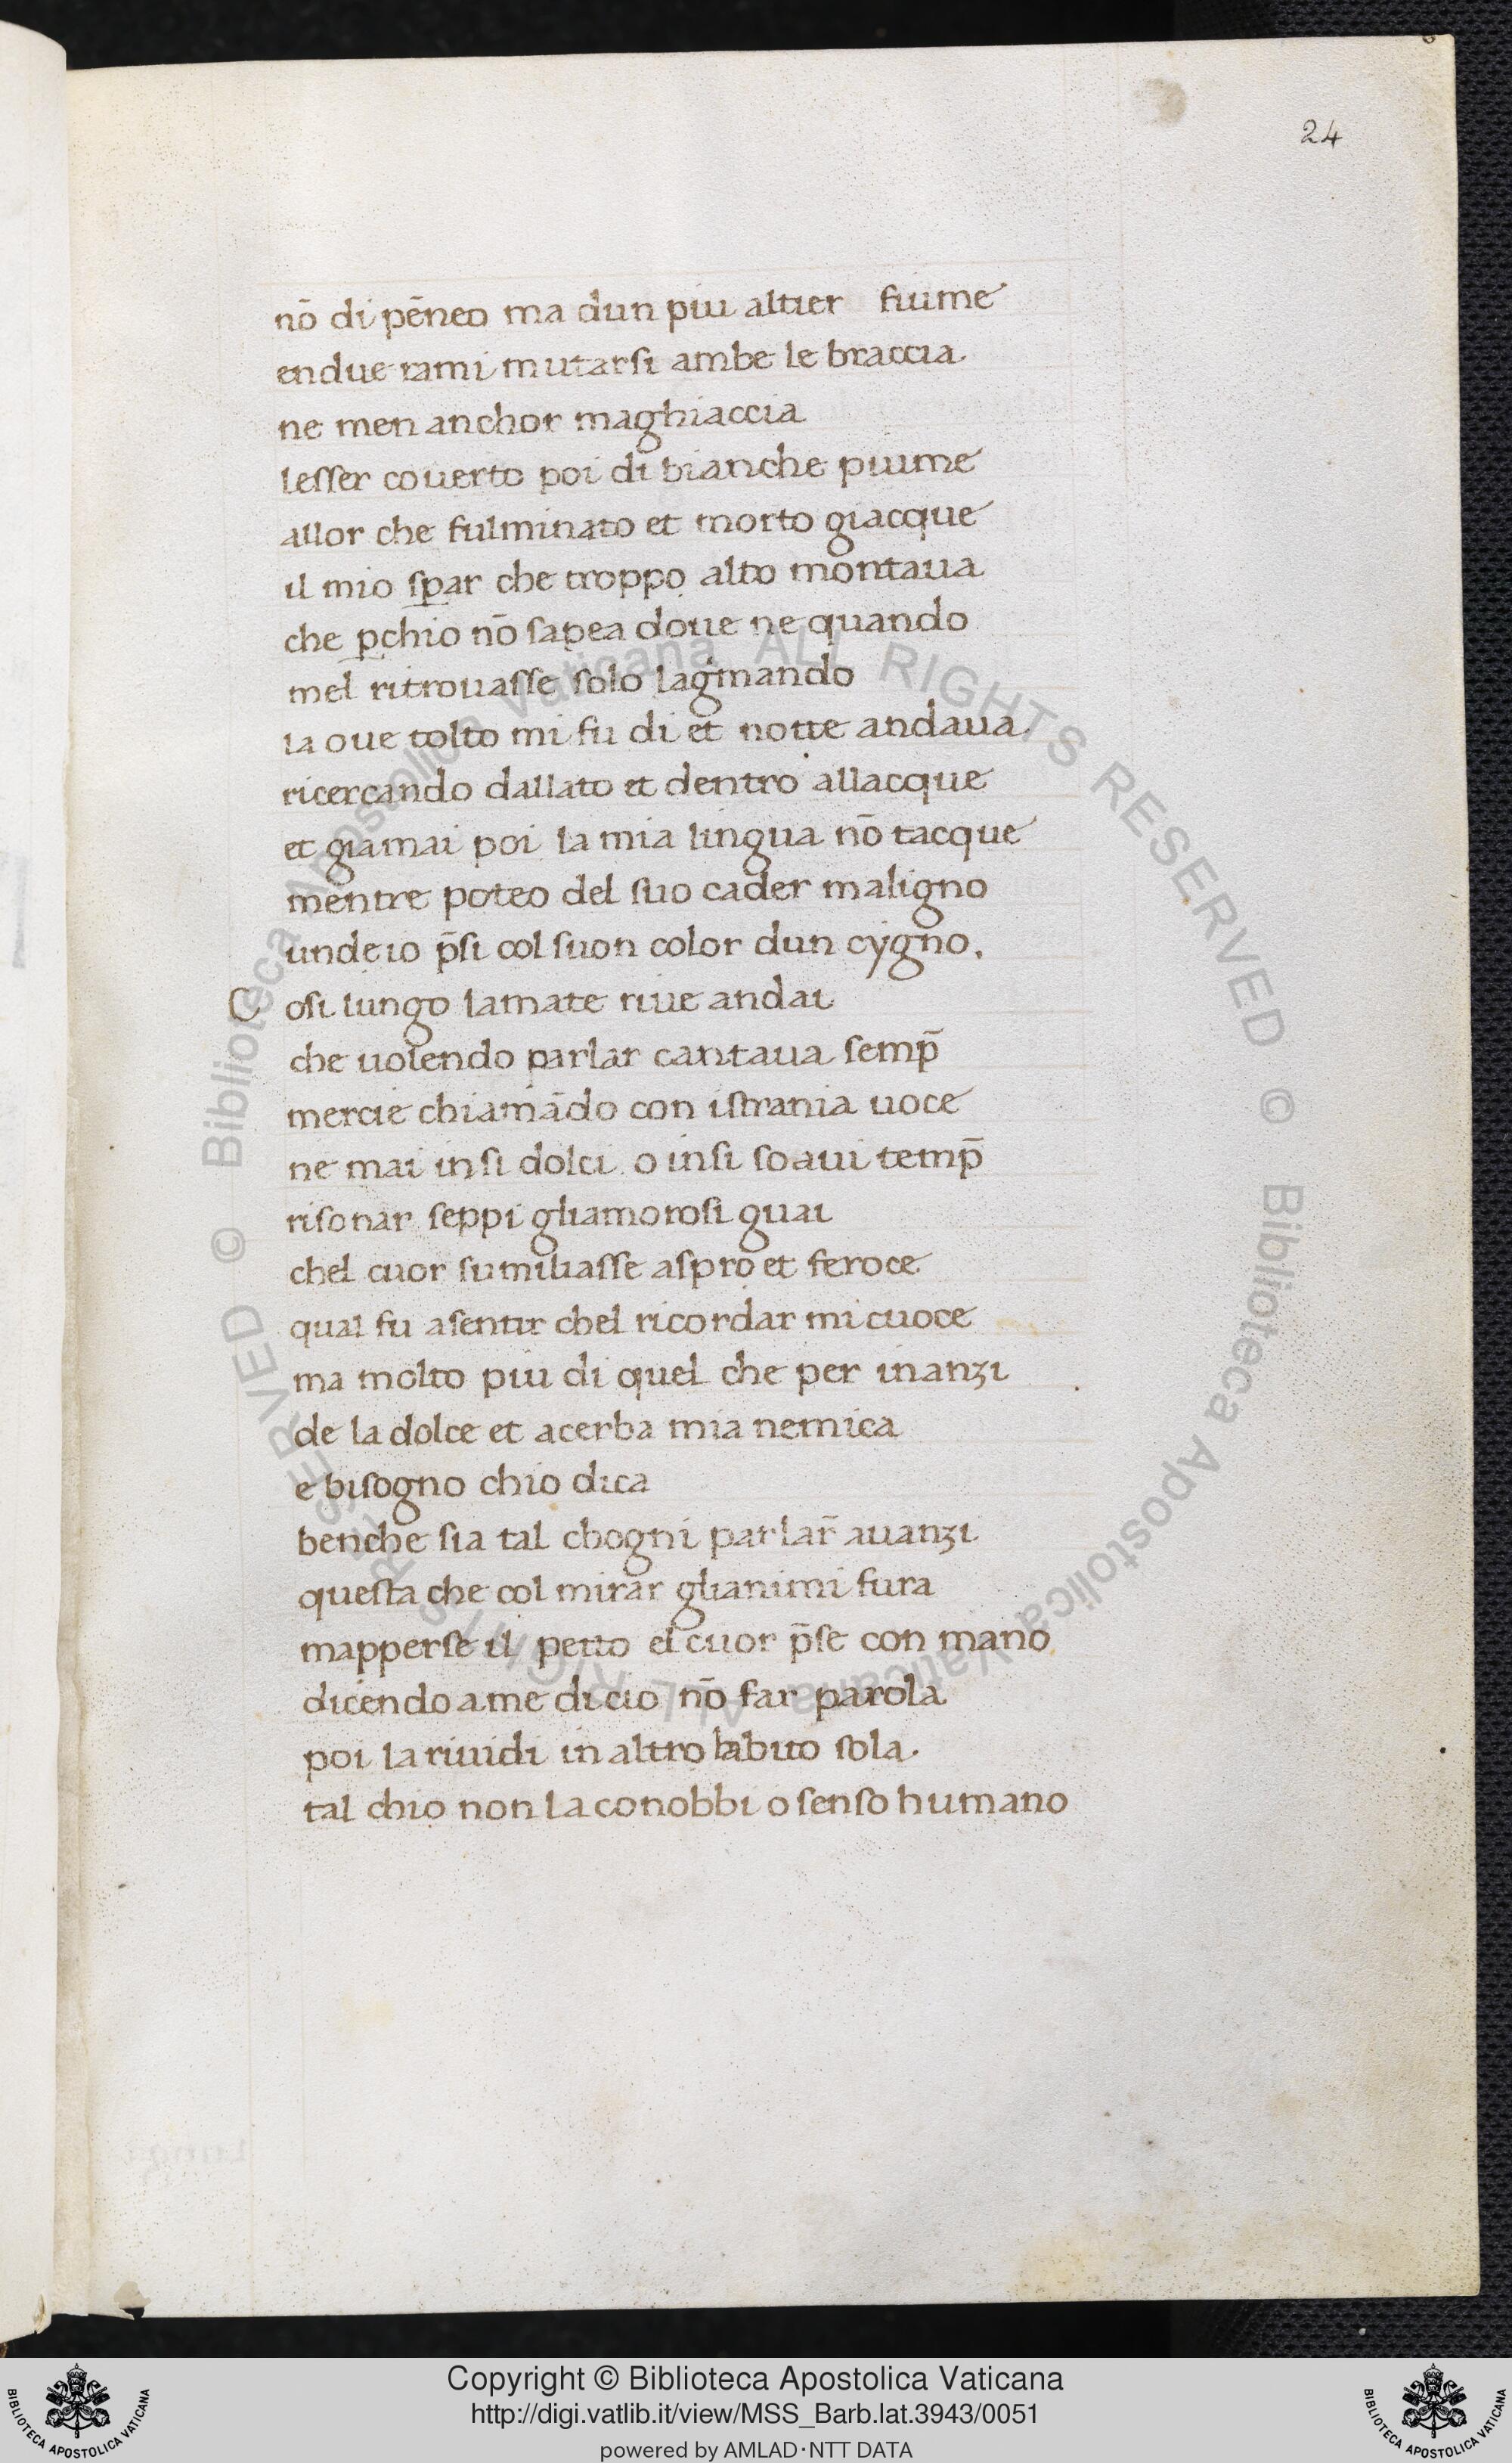 24
nō di pēneo ma dun piu altier fiume
endue rami mutarsi ambe le braccia
ne men anchor maghiaccia
lesser couerto poi di bianche piume
allor che fulminato et morto giacque
il mio sꝑar che troppo alto montaua
che ꝑchio nō sapea doue ne quando
mel ritrouasse solo lagmando
la oue tolto mi fu di et notte andaua
ricercando dallato et dentro allacque
et giamai poi la mia lingua nō tacque
mentre poteo del suo cader maligno
unde io p̄si col suon color dun cygno.
C osi lungo lamate riue andai
che uolendo parlar cantaua semp̄
mercie chiamādo con istrania uoce
ne mai in si dolci o in si soaui temp̄
risonar seppi gliamorosi guai
chel cuor sumiliasse aspro et feroce
qual fu asentir chel ricordar mi cuoce
ma molto piu di quel che per inanzi
de la dolce et acerba mia nemica
e bisogno chio dica
benche sia tal chogni parlar̄ auanzi
questa che col mirar glianimi fura
mapperse il petto el cuor p̄se con mano
dicendo a me di cio nō far parola
poi la riuidi in altro habito sola.
tal chio non la conobbi o senso humano
© Biblioteca Apostolica Vaticana ALL RIGHTS RESERVED
© Biblioteca Apostolica Vaticana ALL RIGHTS RESERVED
Copyright © Biblioteca Apostolica Vaticana
http://digi.vatlib.it/view/MSS_Barb.lat.3943/0051
powered by AMLAD·NTT DATA
BIBLIOTECA APOSTOLICA VATICANA
BIBLIOTECA APOSTOLICA VATICANA